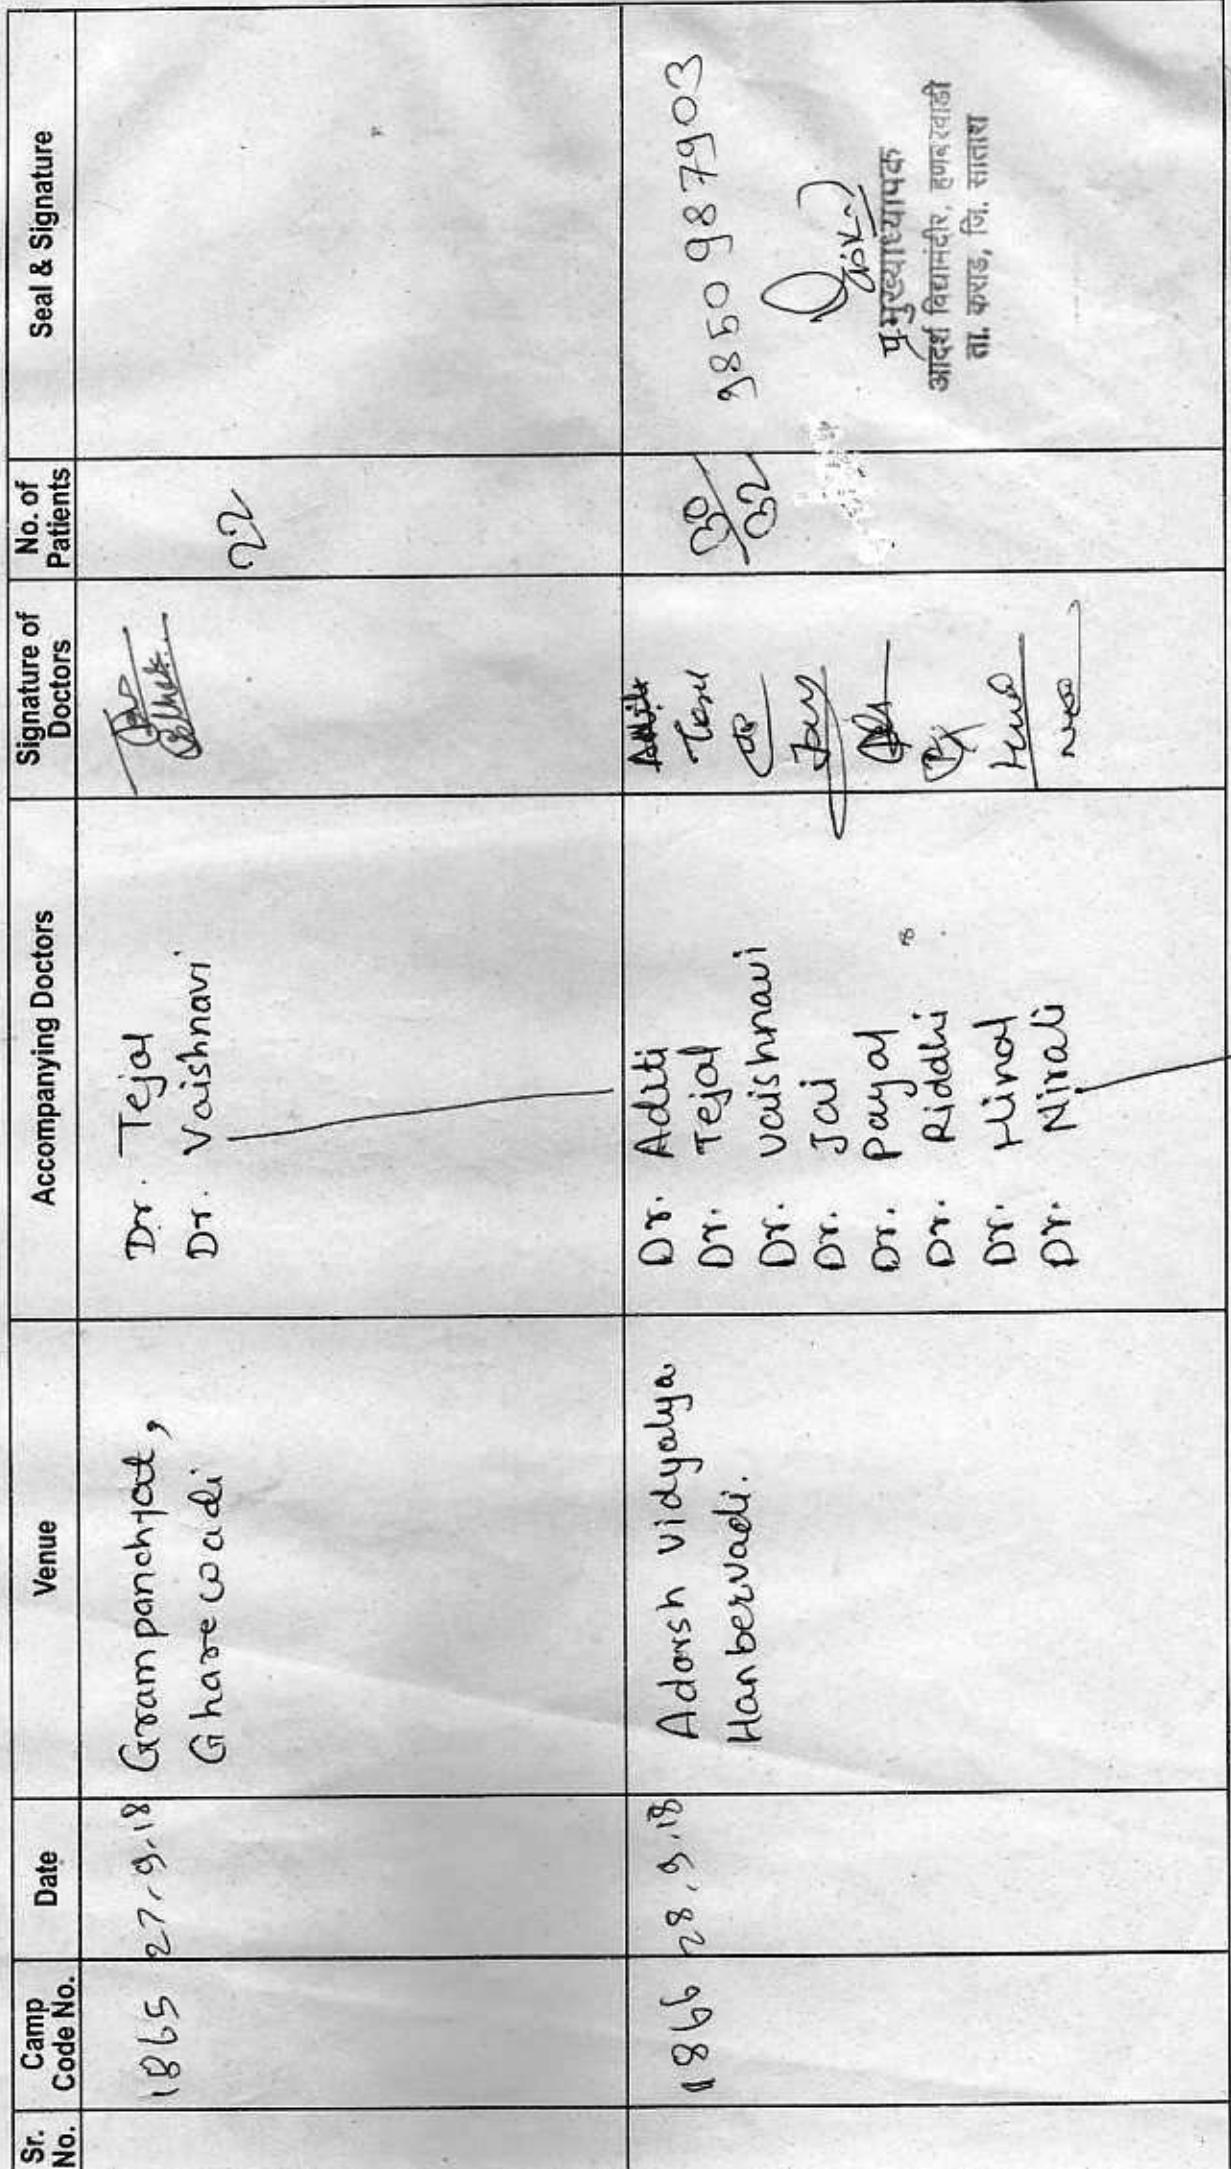 Sr. No.
Camp Code No.
Date
Venue
Accompanying Doctors
Signature of Doctors
No. of Patients
Seal & Signature
1865
27.9.18
Grampanchyat,
Gharewadi
Dr. Tejal
Dr. Vaishnavi
22
1866
28.9.18
Adarsh Vidyalya
Hanbervadi.
Dr. Aditi
Dr. Tejal
Dr. Vaishnavi
Dr. Jai
Dr. Payal
Dr. Riddhi
Dr. Hinal
Dr. Nirali
30/32
9850987903
मुख्याध्यापक
आदर्श विद्यामंदीर, हणबरवाडी
ता. कराड, जि. सातारा